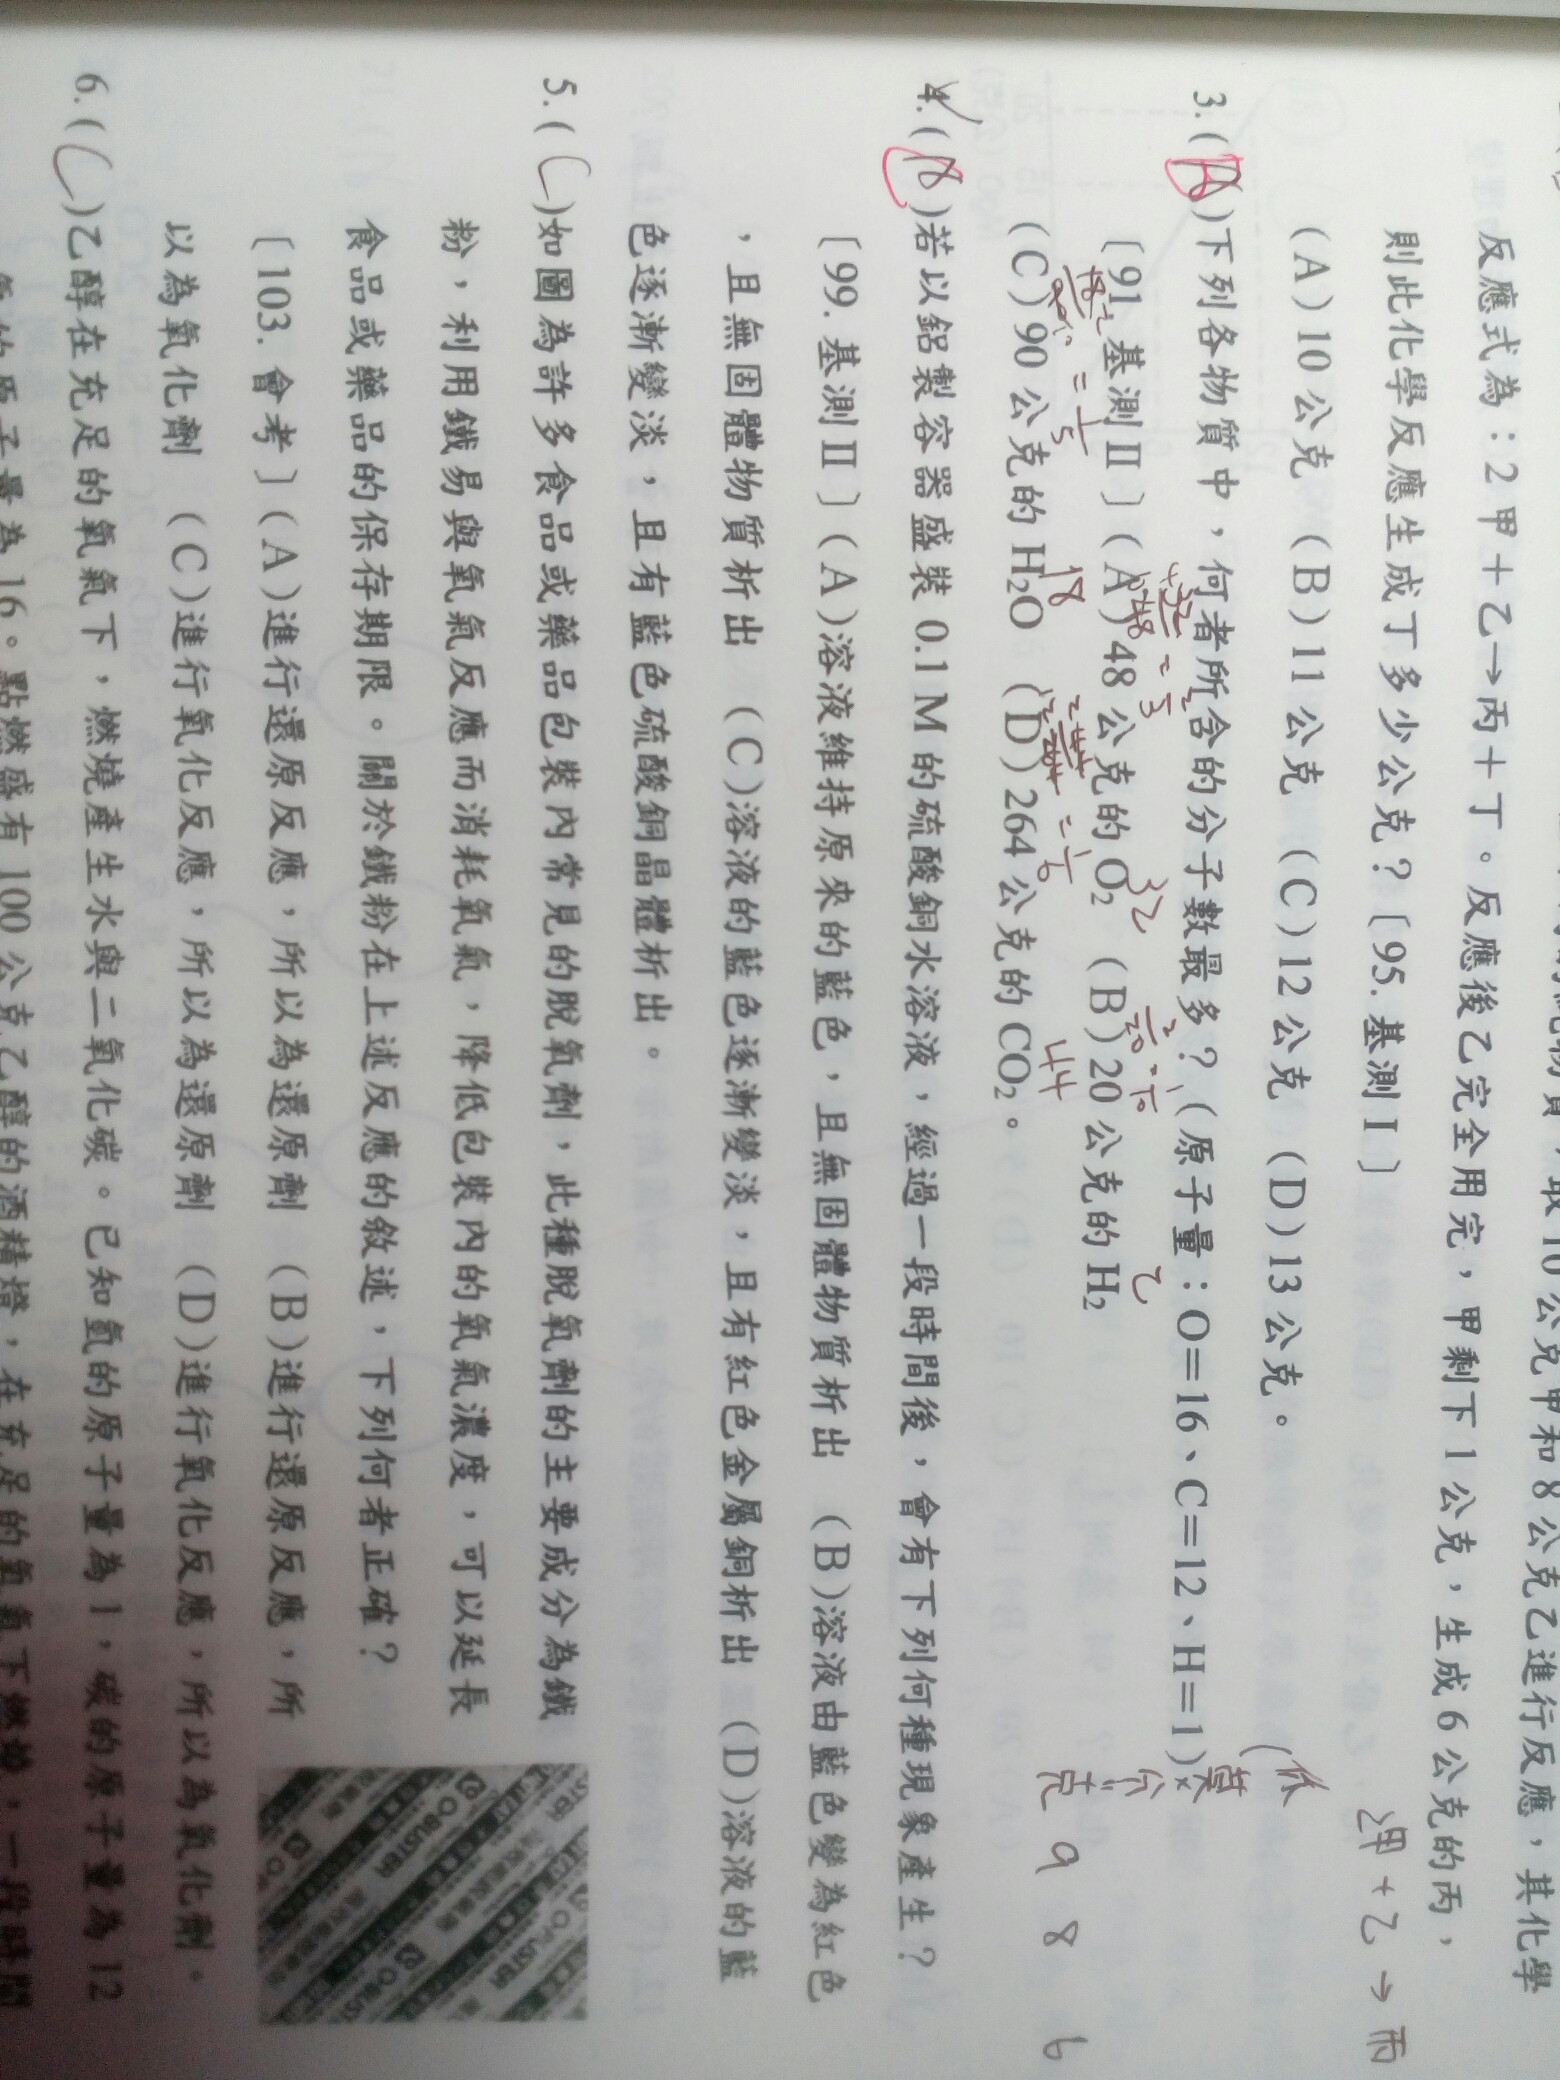 反應式為：2甲＋乙→丙＋丁。反應後乙完全用完，甲剩下1公克，生成6公克的丙，
則此化學反應生成丁多少公克？〔95.基測Ⅰ〕
(A)10公克 (B)11公克 (C)12公克 (D)13公克。
3.( )下列各物質中，何者所含的分子數最多？(原子量：O＝16、C＝12、H＝1)
〔91.基測Ⅱ〕(A)48公克的O₂ (B)20公克的H₂
(C)90公克的H₂O (D)264公克的CO₂。
4.( )若以鋁製容器盛裝0.1M的硫酸銅水溶液，經過一段時間後，會有下列何種現象產生？
〔99.基測Ⅱ〕(A)溶液維持原來的藍色，且無固體物質析出 (B)溶液由藍色變為紅色
，且無固體物質析出 (C)溶液的藍色逐漸變淡，且有紅色金屬銅析出 (D)溶液的藍
色逐漸變淡，且有藍色硫酸銅晶體析出。
5.(C)如圖為許多食品或藥品包裝內常見的脫氧劑，此種脫氧劑的主要成分為鐵
粉，利用鐵易與氧氣反應而消耗氧氣，降低包裝內的氧氣濃度，可以延長
食品或藥品的保存期限。關於鐵粉在上述反應的敘述，下列何者正確？
〔103.會考〕(A)進行還原反應，所以為還原劑 (B)進行還原反應，所
以為氧化劑 (C)進行氧化反應，所以為還原劑 (D)進行氧化反應，所以為氧化劑。
6.(C)乙醇在充足的氧氣下，燃燒產生水與二氧化碳。已知氫的原子量為1，碳的原子量為12
，氧的原子量為16。點燃盛有100公克乙醇的酒精燈，在充足的氧氣下燃燒，一段時間
18
32
2
44
甲＋乙→丙
係
質
分
克 9 8 6